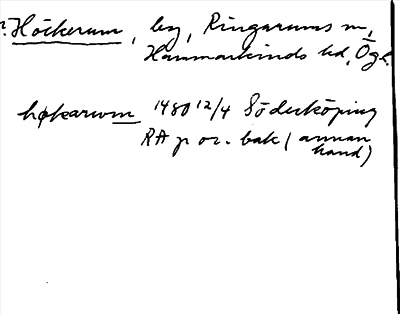 ?Höckerum, by, Ringarums sn,
Hammarkinds hd, Ögl.
høkarwm 1480 12/4 Söderköping
RA p or. bak (annan
hand)